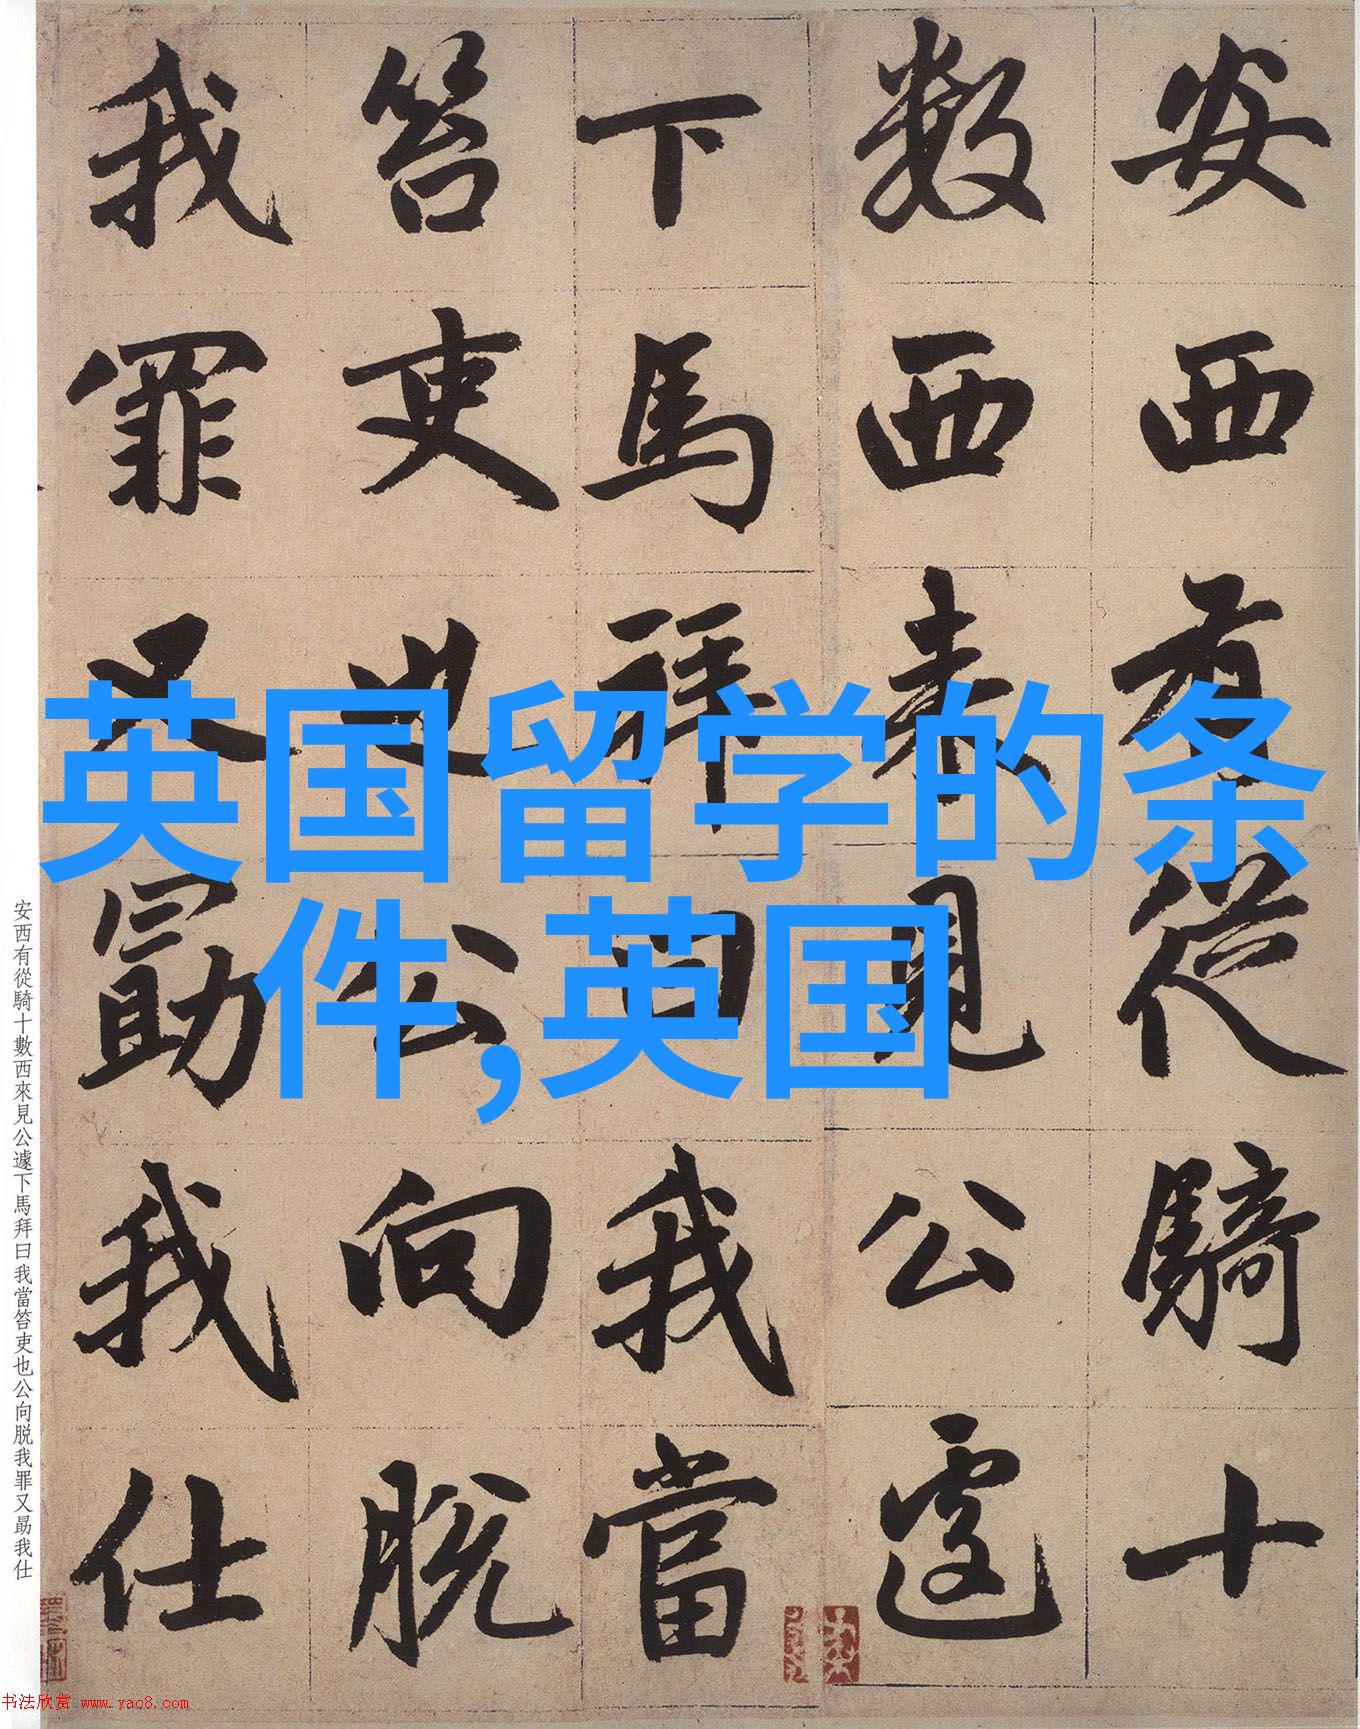 安西有從騎十
數西來見公遽
下馬拜曰我當
笞吏也公向脱
我罪又勗我仕
英国留学的条
件,英国
安西有從騎十數西來見公遽下馬拜曰我當笞吏也公向脱我罪又勗我仕
书法欣赏 www.yac8.com